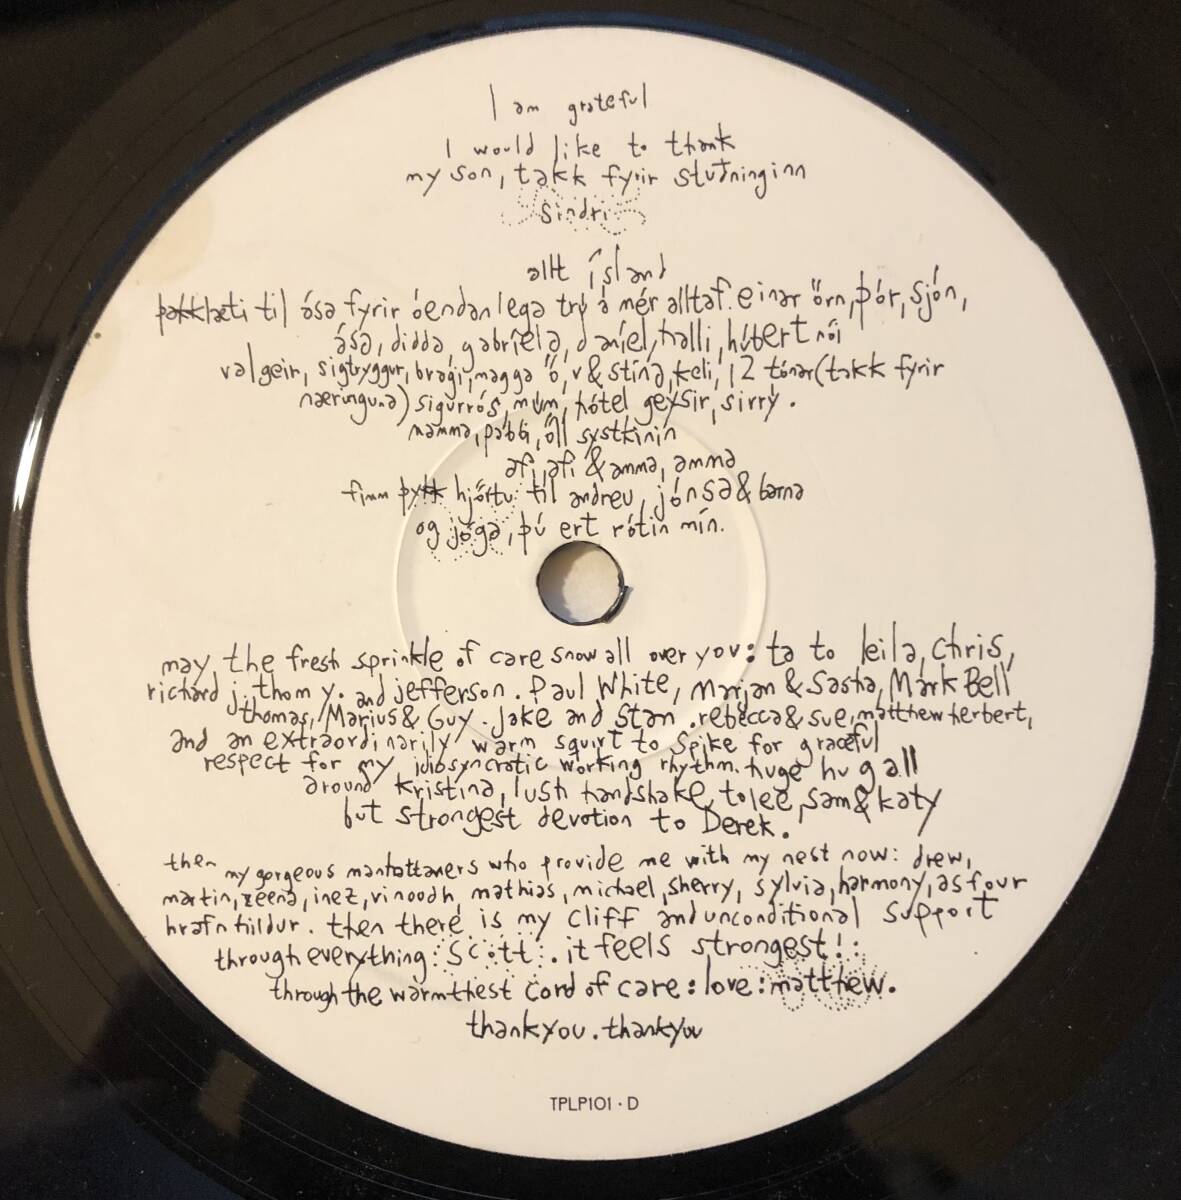 I am grateful
I would like to thank
my son, takk fyrir stuðninginn
sindri
allt ísland
þakklæti til ása fyrir óendanlega trú á mér alltaf. einar örn, þór, sjón,
ása, didda, gabríela, daníel, halli, húbert nói
valgeir, sigtryggur, bragi, magga ö, v & stína, keli, 12 tónar (takk fyrir
næringuna) sigurrós, múm, hótel geysir, sirrý.
mamma, pabbi, öll systkinin
afi, afi & amma, amma
fimm þykk hjörtu til andreu, jónsa & barna
og jóga, þú ert rótin mín.
may the fresh sprinkle of care snow all over you: ta to leila, chris,
richard j. thom y. and jefferson. Paul White, Marjan & Sasha, Mark Bell
thomas, Marius & Guy. Jake and Stan. rebecca & sue, matthew herbert,
and an extraordinarily warm squirt to Spike for graceful
respect for my idiosyncratic working rhythm. huge hug all
around kristina, lush handshake to lee, sam & katy
but strongest devotion to Derek.
then my gorgeous manhattaners who provide me with my nest now: drew,
martin, zeena, inez, vinoodh, mathias, michael, sherry, sylvia, harmony, as four
hrafnhildur. then there is my cliff and unconditional support
through everything: scott. it feels strongest!
through the warmthest cord of care: love: matthew.
thankyou. thankyou
TPLP101 · D